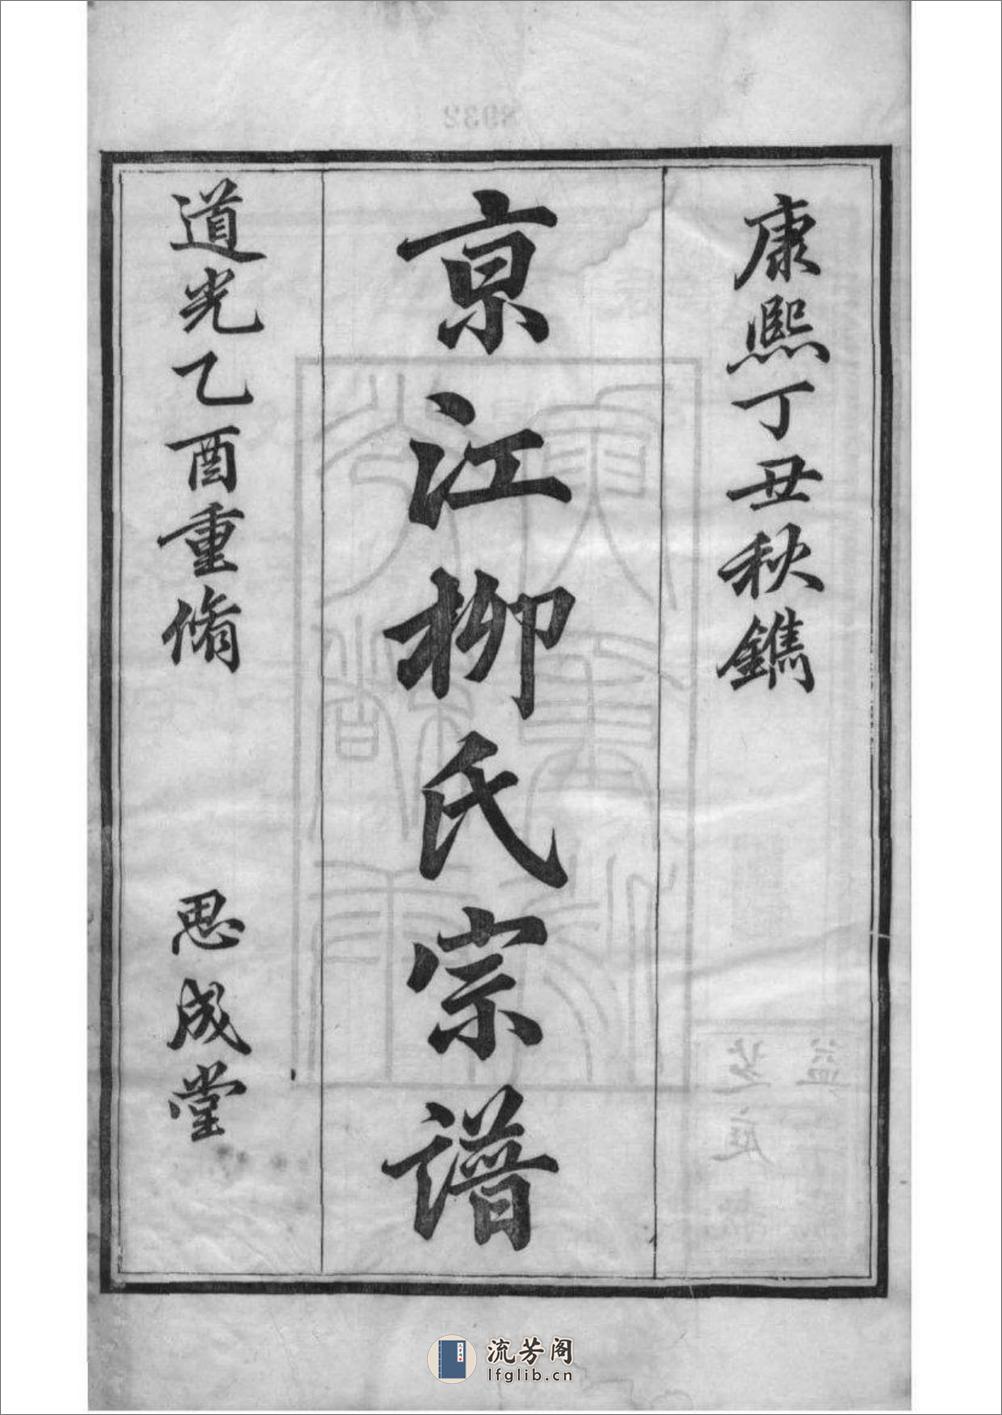 康熙丁丑秋鐫
亰江柳氏宗譜
道光乙酉重脩
思成堂
流芳阁
lfglib.cn